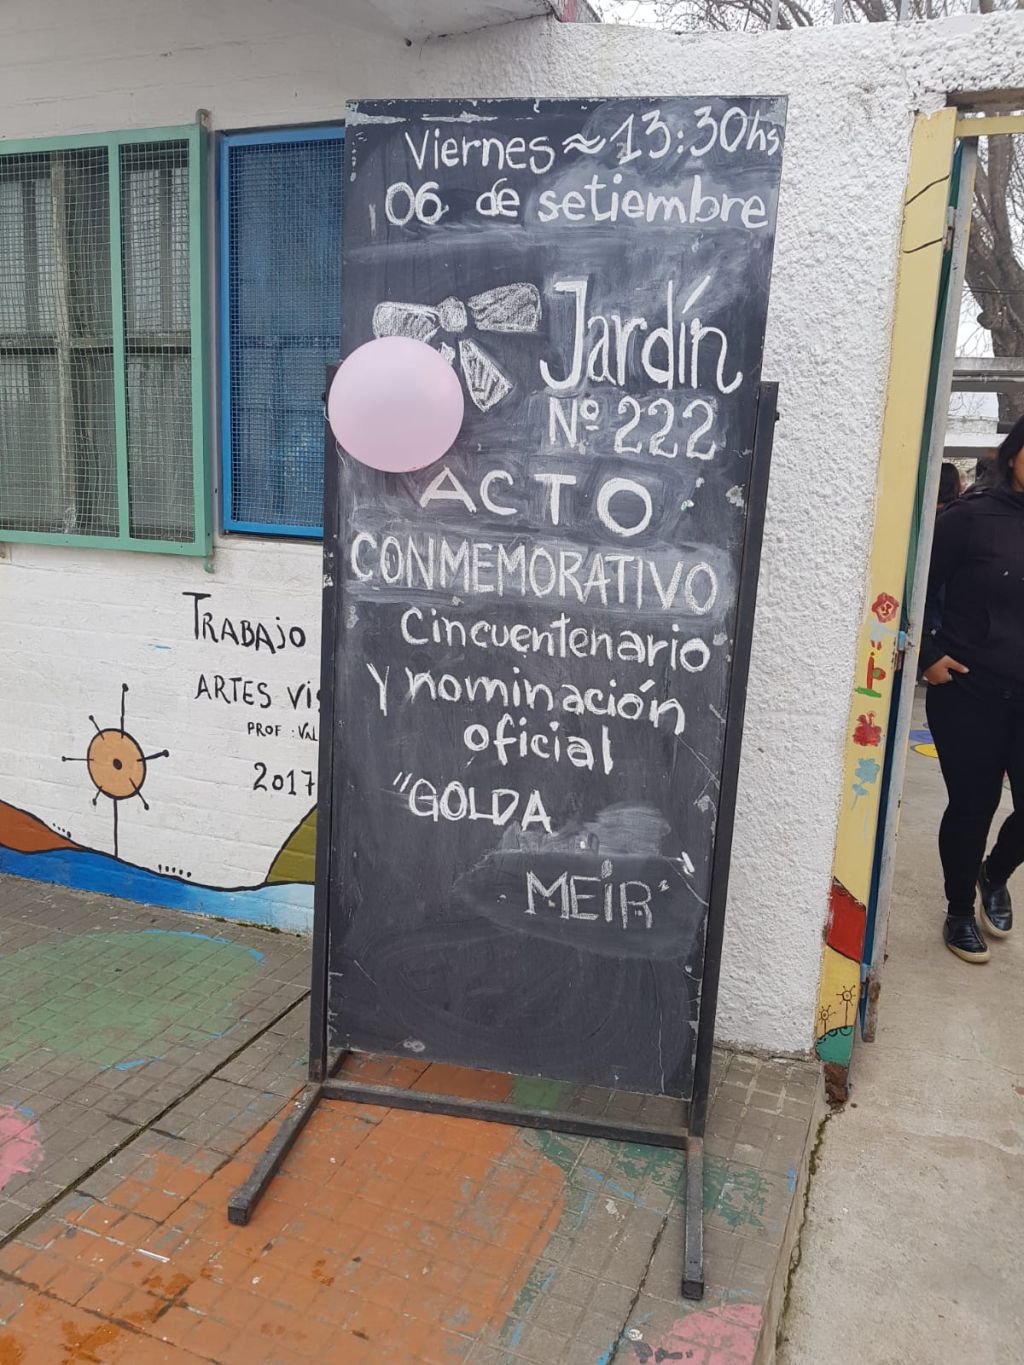 Viernes ≈ 13:30hs
06 de setiembre
Jardín
Nº 222
ACTO
CONMEMORATIVO
Cincuentenario
y nominación
oficial
"GOLDA
MEIR"
TRABAJO
ARTES
PROF:
2017